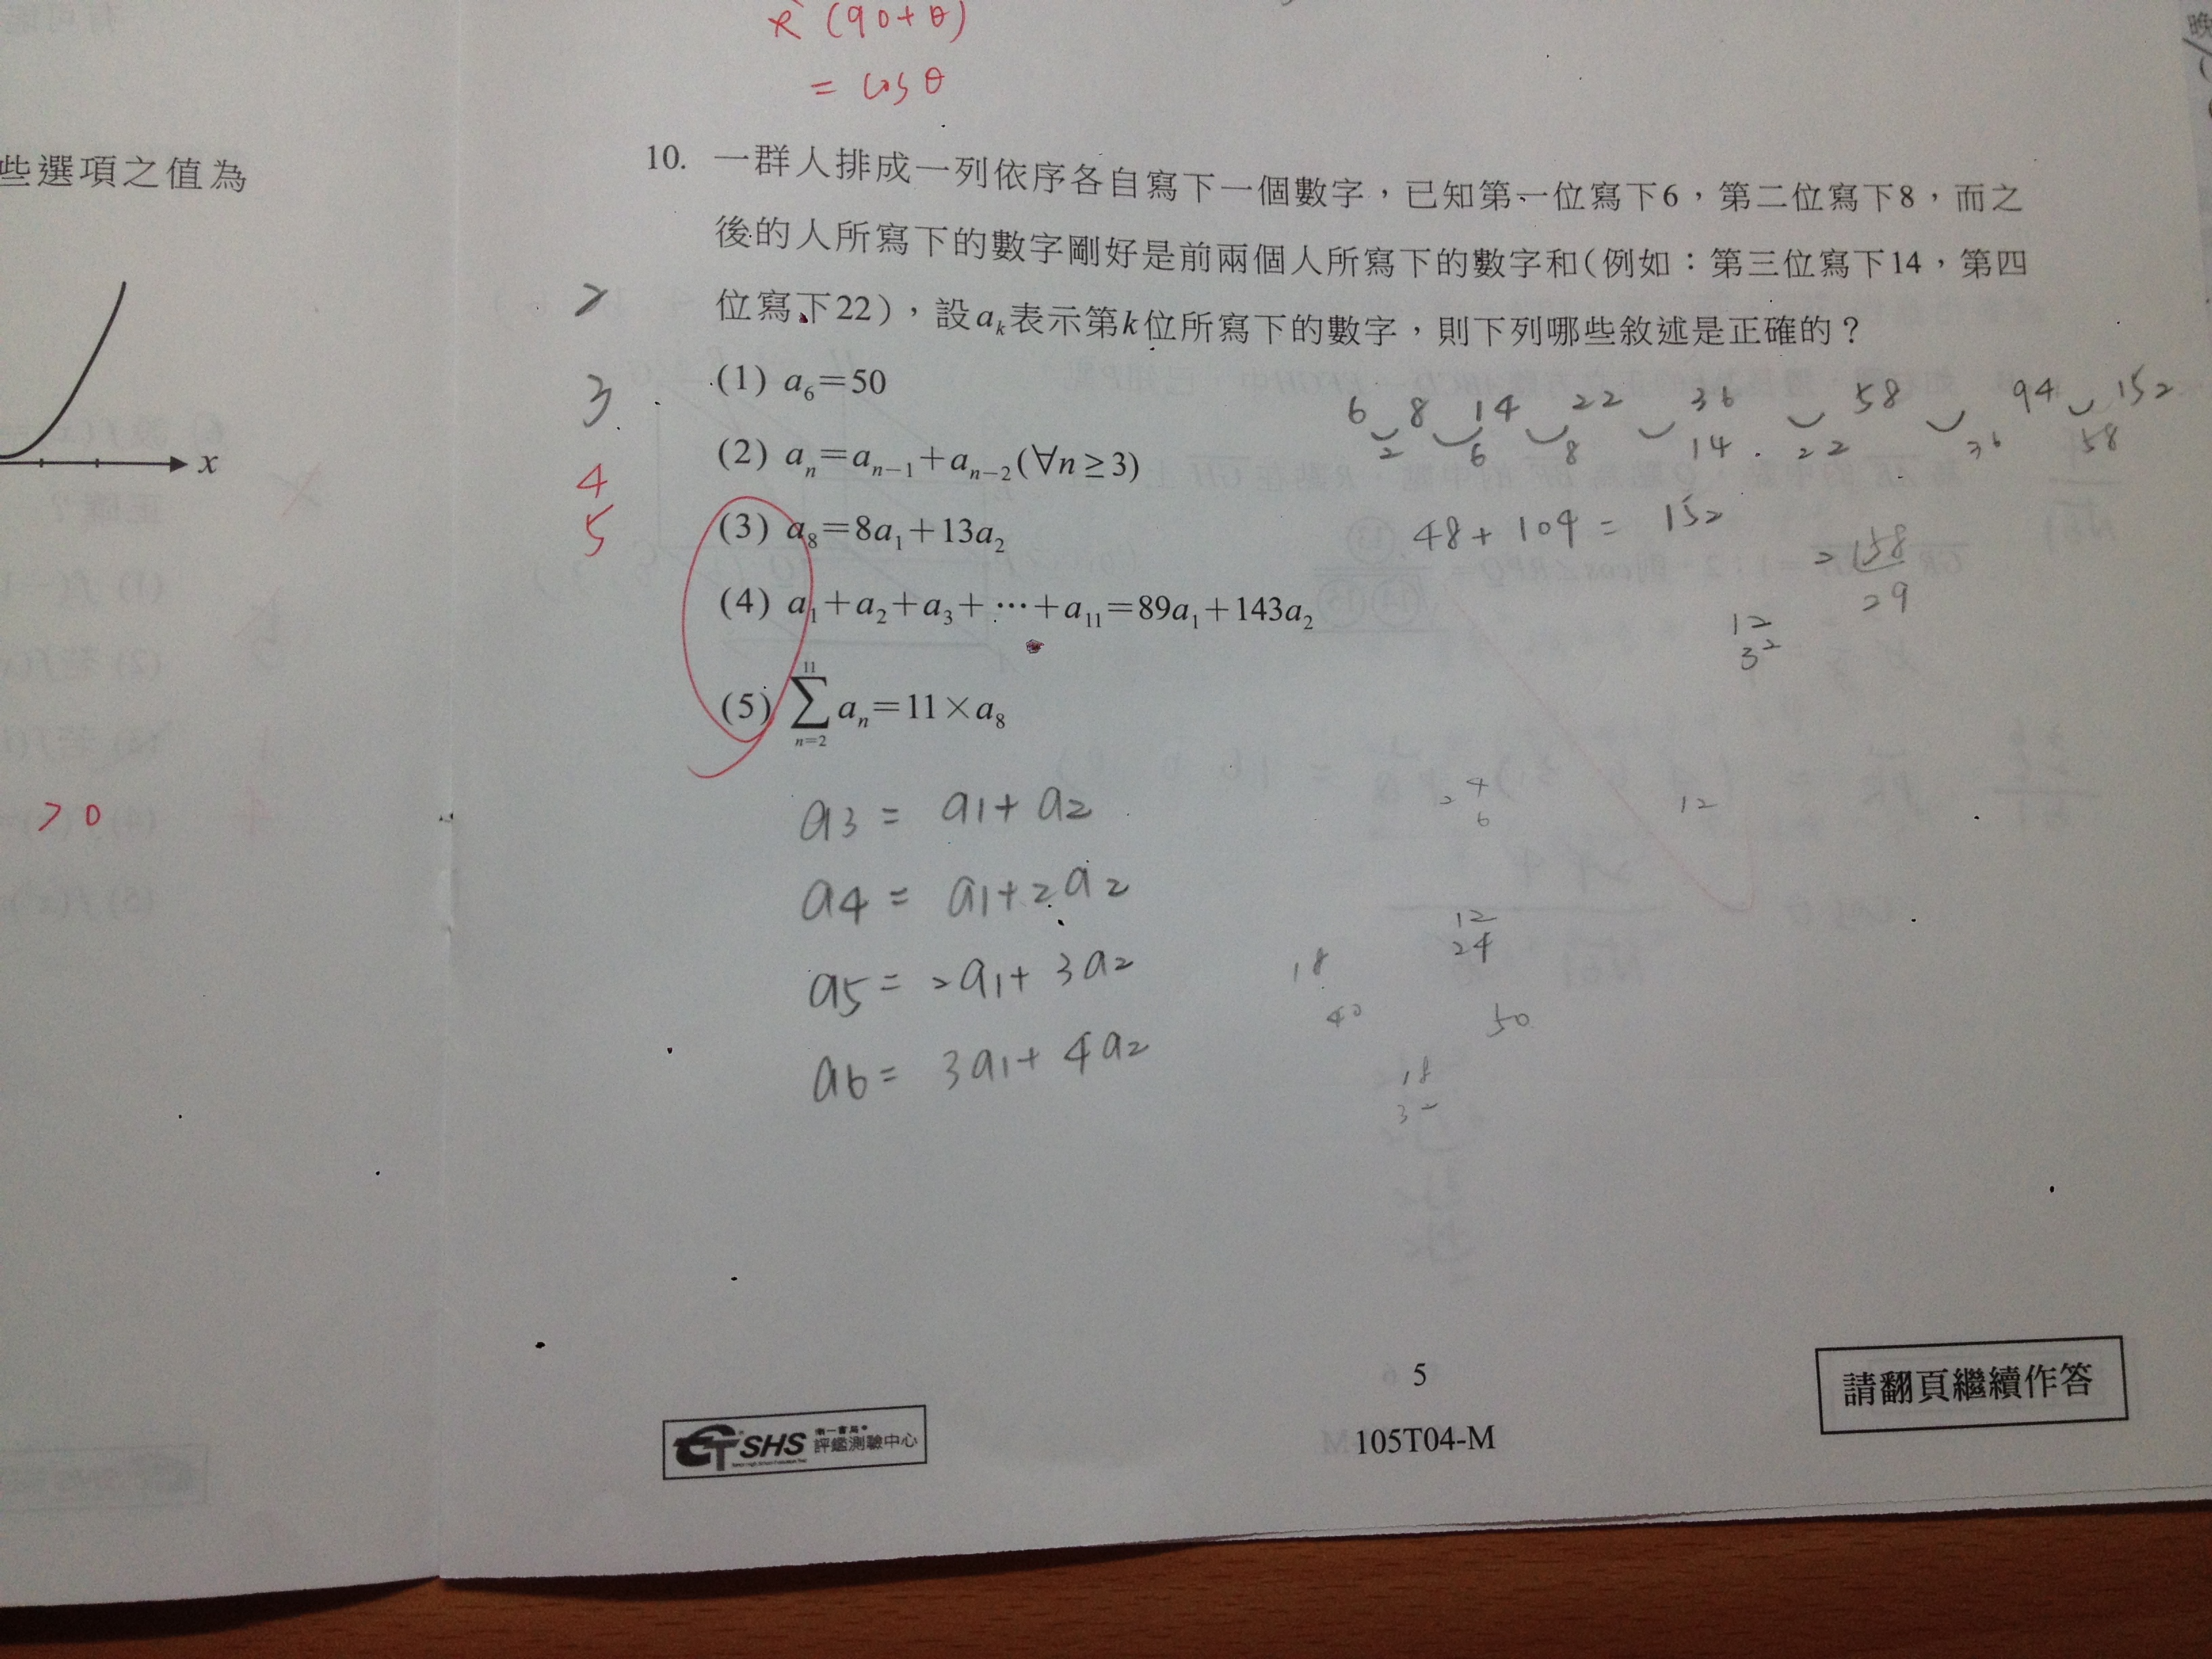 (90+θ)
= cosθ
些選項之值為
x
> 0
10. 一群人排成一列依序各自寫下一個數字，已知第一位寫下6，第二位寫下8，而之
後的人所寫下的數字剛好是前兩個人所寫下的數字和（例如：第三位寫下14，第四
位寫下22），設aₖ表示第k位所寫下的數字，則下列哪些敘述是正確的？
2
3
4
5
(1) a₆=50
(2) aₙ=aₙ₋₁+aₙ₋₂(∀n≥3)
(3) a₈=8a₁+13a₂
(4) a₁+a₂+a₃+⋯+a₁₁=89a₁+143a₂
(5) ∑ₙ₌₂¹¹ aₙ=11×a₈
6 8 14 22 36 58 94 152
2 6 8 14 22 36 58
48+104= 152
29
12
32
a3 = a1+a2
a4 = a1+2a2
a5= 2a1+3a2
a6= 3a1+4a2
2 4
6
12
12
24
18
40
50
18
32
5
105T04-M
GTSHS 南一書局 評鑑測驗中心
請翻頁繼續作答